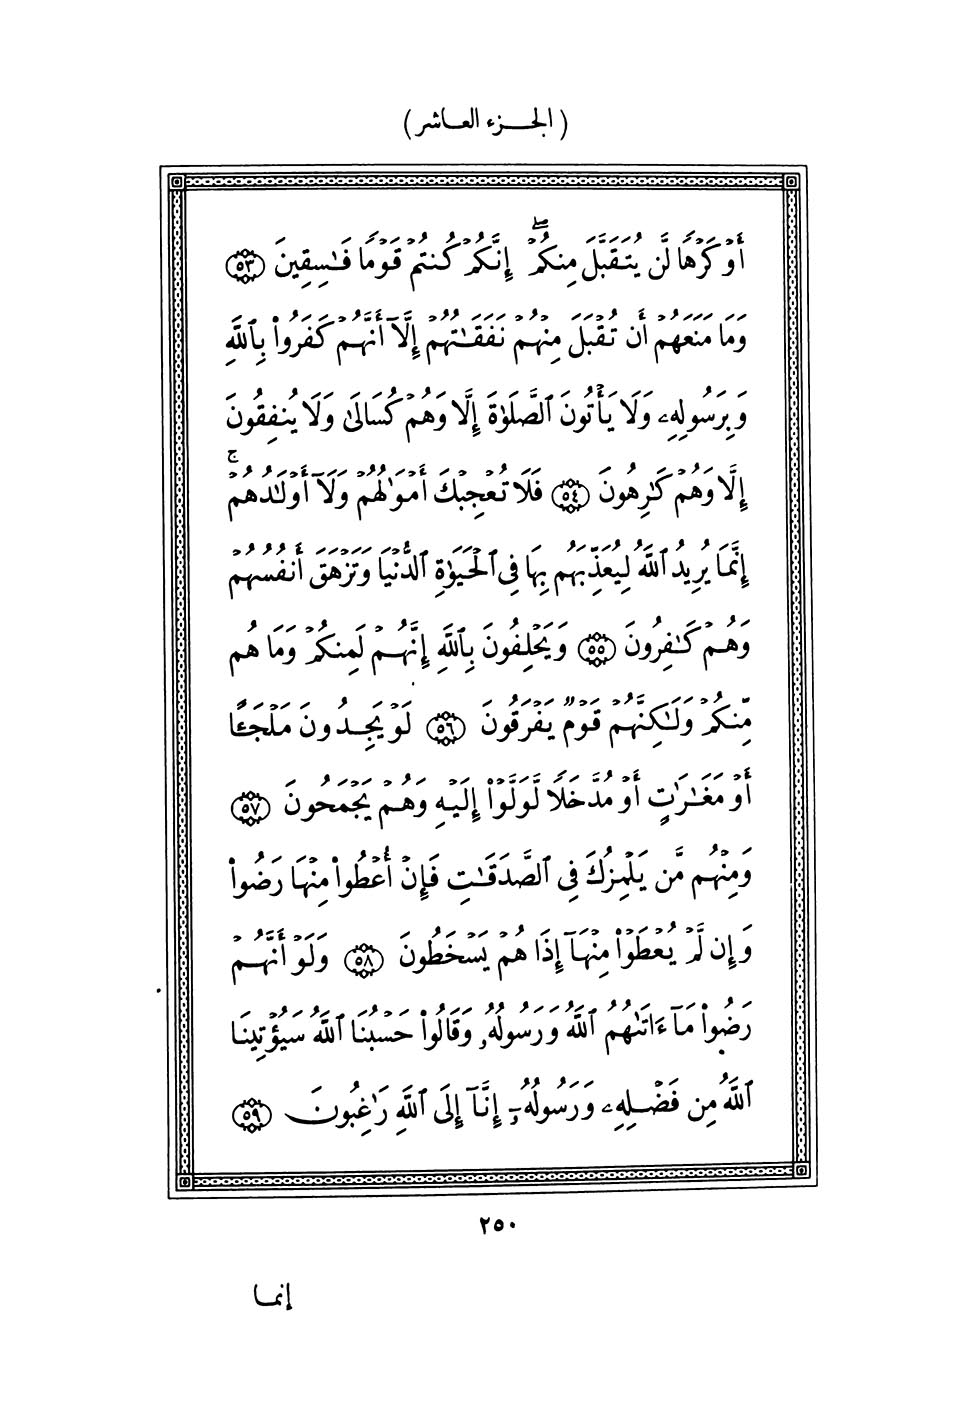 (الجزء العاشر)
أَوْ كَرْهًا لَّن يُتَقَبَّلَ مِنكُمْ ۖ إِنَّكُمْ كُنتُمْ قَوْمًا فَـٰسِقِينَ ٥٣
وَمَا مَنَعَهُمْ أَن تُقْبَلَ مِنْهُمْ نَفَقَـٰتُهُمْ إِلَّآ أَنَّهُمْ كَفَرُوا۟ بِٱللَّهِ
وَبِرَسُولِهِۦ وَلَا يَأْتُونَ ٱلصَّلَوٰةَ إِلَّا وَهُمْ كُسَالَىٰ وَلَا يُنفِقُونَ
إِلَّا وَهُمْ كَـٰرِهُونَ ٥٤ فَلَا تُعْجِبْكَ أَمْوَٰلُهُمْ وَلَآ أَوْلَـٰدُهُمْ ۚ
إِنَّمَا يُرِيدُ ٱللَّهُ لِيُعَذِّبَهُم بِهَا فِى ٱلْحَيَوٰةِ ٱلدُّنْيَا وَتَزْهَقَ أَنفُسُهُمْ
وَهُمْ كَـٰفِرُونَ ٥٥ وَيَحْلِفُونَ بِٱللَّهِ إِنَّهُمْ لَمِنكُمْ وَمَا هُم
مِّنكُمْ وَلَـٰكِنَّهُمْ قَوْمٌ يَفْرَقُونَ ٥٦ لَوْ يَجِدُونَ مَلْجَـًٔا
أَوْ مَغَـٰرَٰتٍ أَوْ مُدَّخَلًا لَّوَلَّوْا۟ إِلَيْهِ وَهُمْ يَجْمَحُونَ ٥٧
وَمِنْهُم مَّن يَلْمِزُكَ فِى ٱلصَّدَقَـٰتِ فَإِنْ أُعْطُوا۟ مِنْهَا رَضُوا۟
وَإِن لَّمْ يُعْطَوْا۟ مِنْهَآ إِذَا هُمْ يَسْخَطُونَ ٥٨ وَلَوْ أَنَّهُمْ
رَضُوا۟ مَآ ءَاتَىٰهُمُ ٱللَّهُ وَرَسُولُهُۥ وَقَالُوا۟ حَسْبُنَا ٱللَّهُ سَيُؤْتِينَا
ٱللَّهُ مِن فَضْلِهِۦ وَرَسُولُهُۥٓ إِنَّآ إِلَى ٱللَّهِ رَٰغِبُونَ ٥٩
٢٥٠
إنما